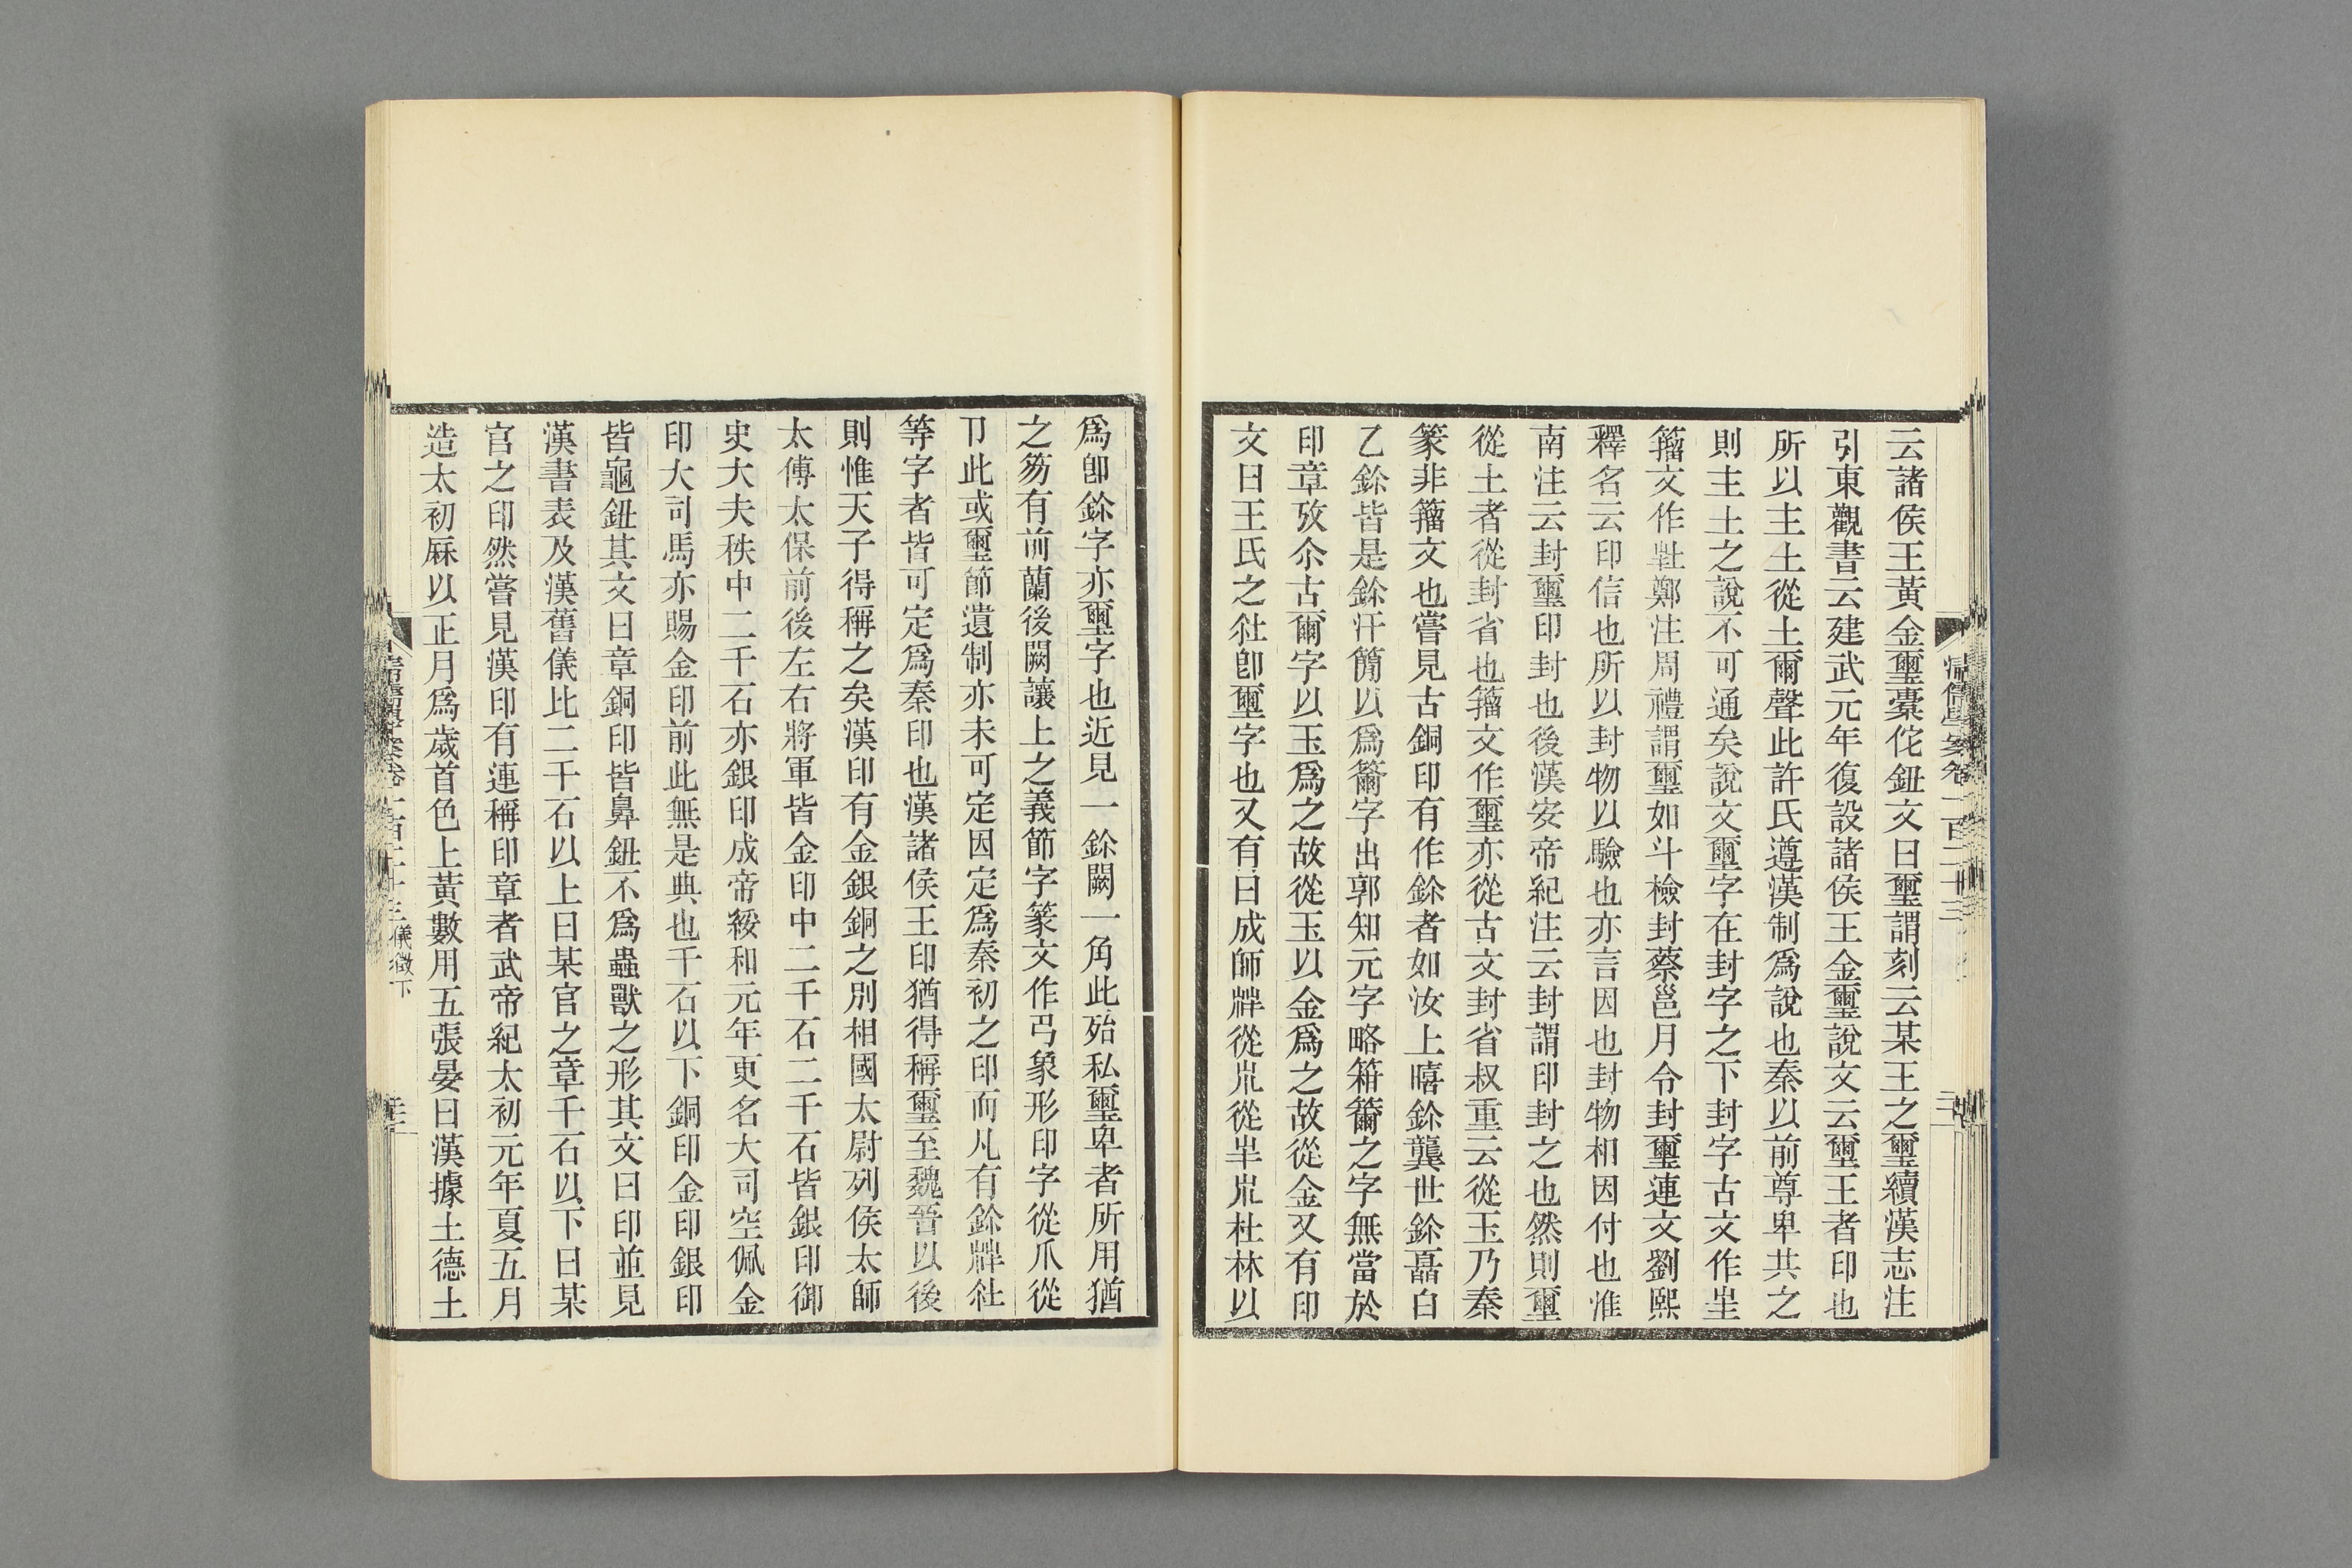 云諸侯王黃金璽橐佗鈕文曰璽謂刻云某王之璽續漢志注
引東觀書云建武元年復設諸侯王金璽說文云璽王者印也
所以主土從土爾聲此許氏遵漢制爲說也秦以前尊卑共之
則主土之說不可通矣說文璽字在封字之下封字古文作㞷
籀文作𡊽鄭注周禮謂璽如斗檢封蔡邕月令封璽連文劉熙
釋名云印信也所以封物以驗也亦言因也封物相因付也淮
南注云封璽印封也後漢安帝紀注云封謂印封之也然則璽
從土者從封省也籀文作璽亦從古文封省叔重云從玉乃秦
篆非籀文也嘗見古銅印有作鉩者如汝上㬢鉩龔世鉩聶白
乙鉩皆是鉩汗簡以爲籋字出郭知元字略箱籋之字無當於
印章攷尒古爾字以玉爲之故從玉以金爲之故從金又有印
文曰王氏之𡉺卽璽字也又有曰成師從從杜林以
爲卽鉩字亦璽字也近見一鉩闕一角此殆私璽卑者所用猶
之芴有前蘭後闕讓上之義節字篆文作弓象形印字從爪從
卩此或璽節遺制亦未可定因定爲秦初之印而凡有鉩
等字者皆可定爲秦印也漢諸侯王印猶得稱璽至魏晉以後
則惟天子得稱之矣漢印有金銀銅之別相國太尉列侯太師
太傅太保前後左右將軍皆金印中二千石二千石皆銀印御
史大夫秩中二千石亦銀印成帝綏和元年更名大司空佩金
印大司馬亦賜金印前此無是典也千石以下銅印金印銀印
皆龜鈕其文曰章銅印皆鼻鈕不爲蟲獸之形其文曰印並見
漢書表及漢舊儀比二千石以上曰某官之章千石以下曰某
官之印然嘗見漢印有連稱印章者武帝紀太初元年夏五月
造太初厤以正月爲歲首色上黃數用五張晏曰漢據土德土
清儒學案卷一百二十三儀徵下